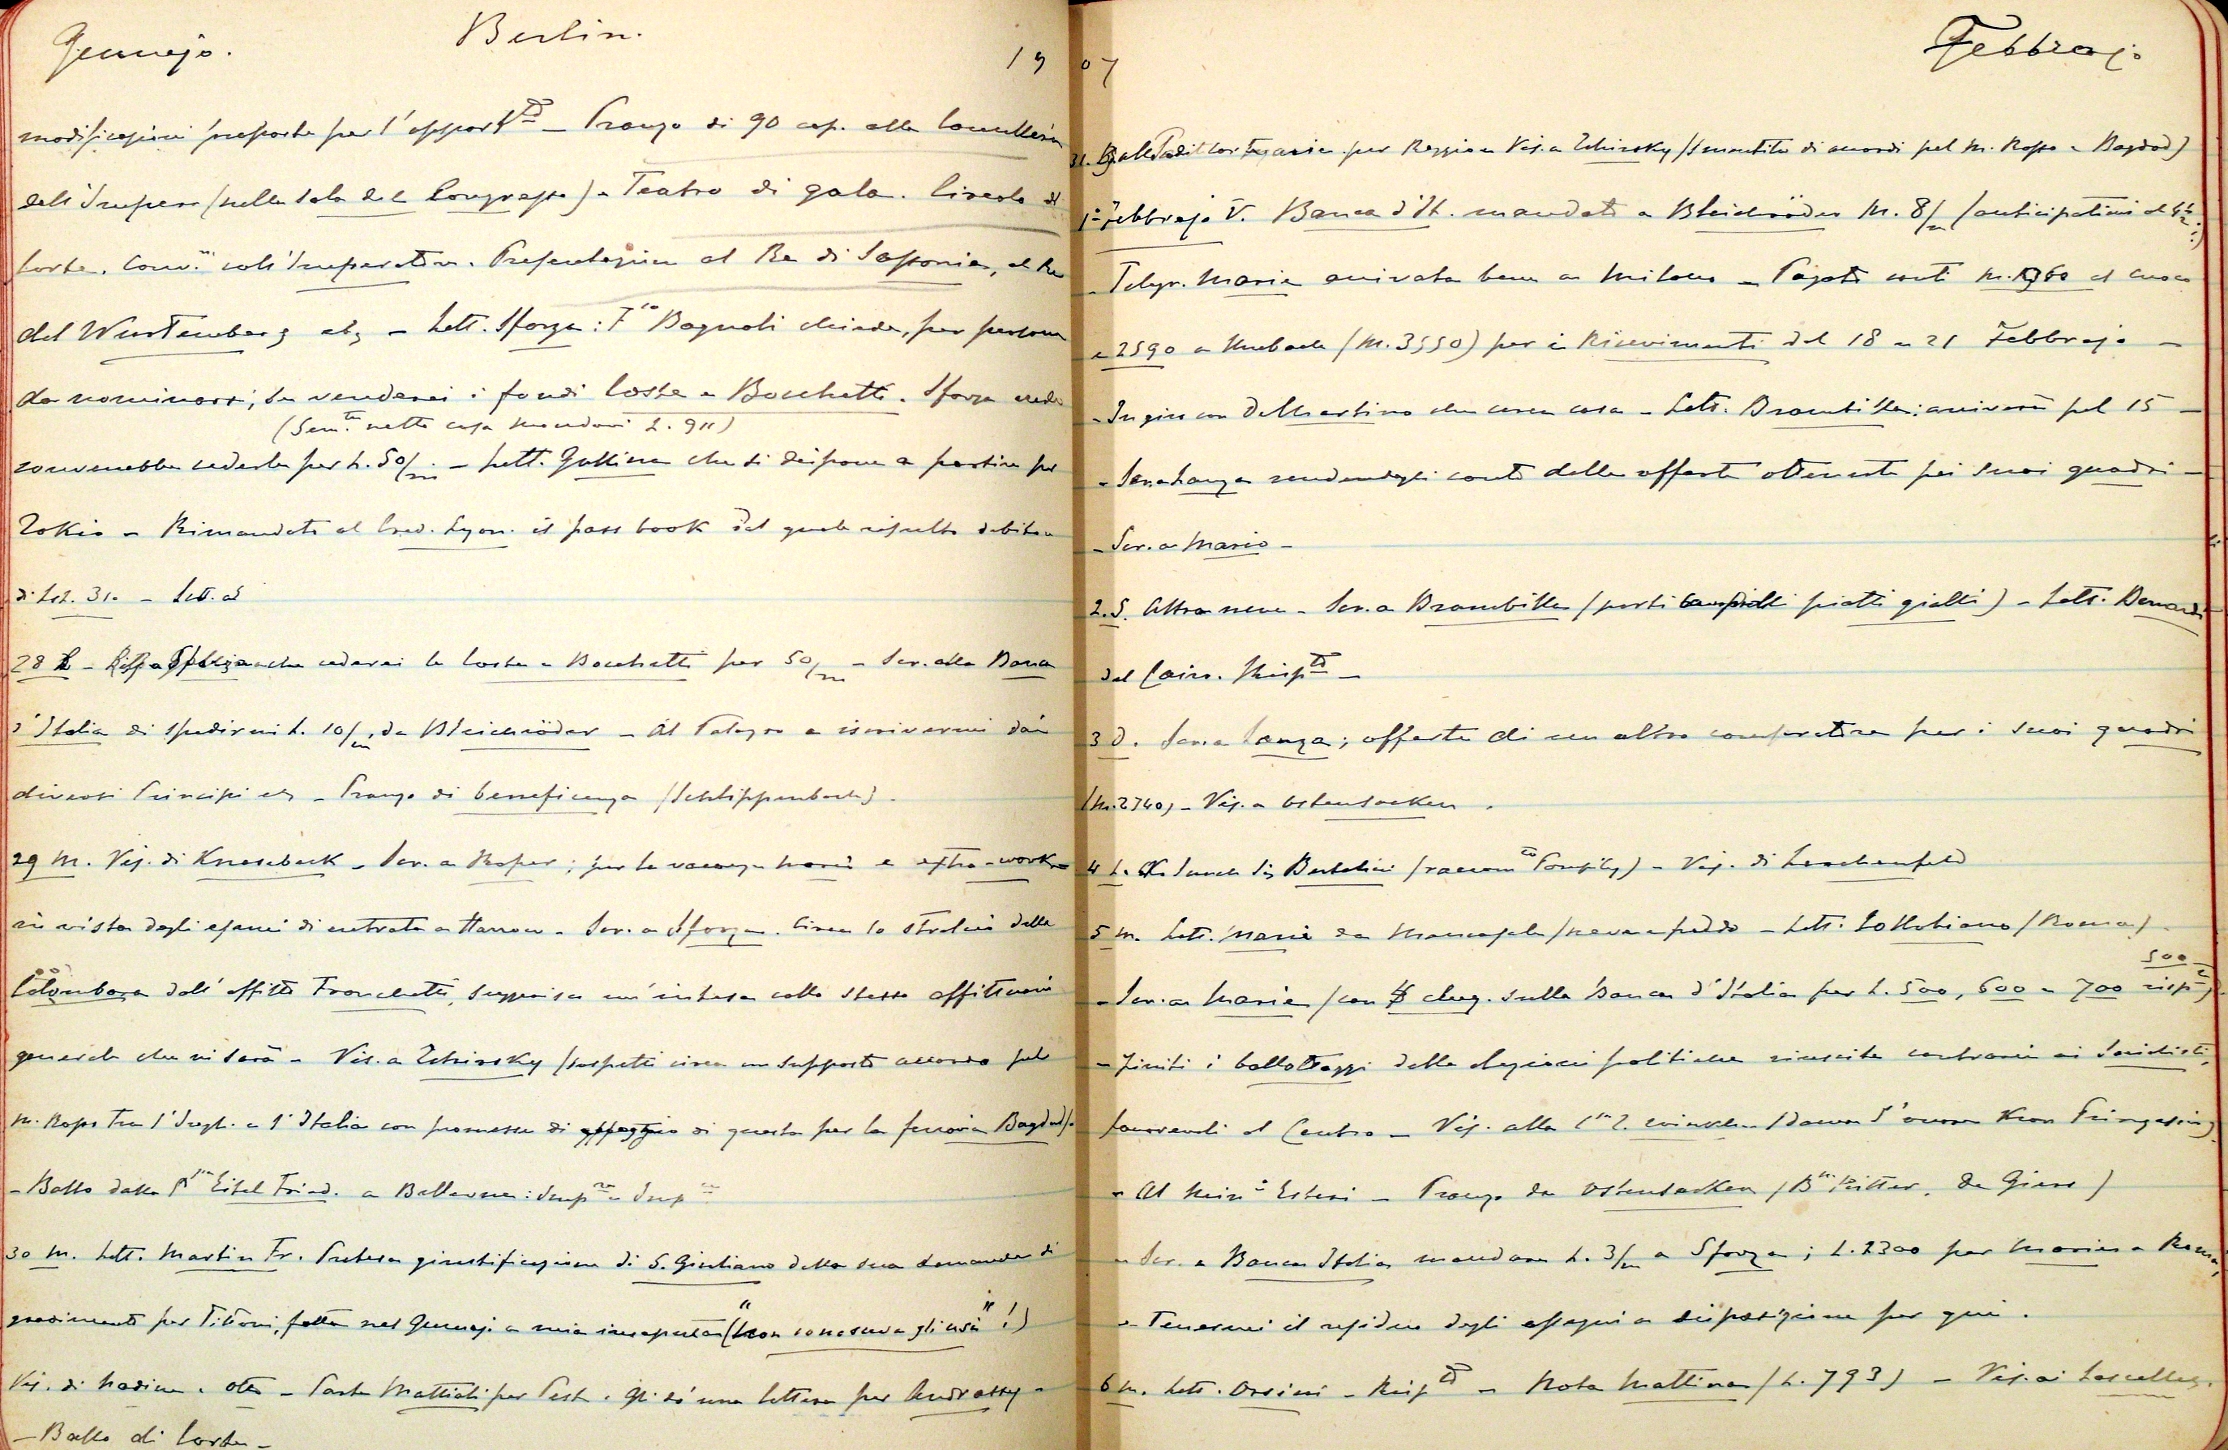 Gennajo. Berlin. 19
modificazioni proposte per l'apport.to – Pranzo di 90 cop. alla Cancelleria
dell'Impero (nella Sala del Congresso) – Teatro di gala. Circolo di
Corte. Conv.ni coll'Imperatore. Presentazione al Re di Sassonia, al Re
del Wurtemberg etc – Lett. Sforza: Bagnoli chiede, per persona
da nominarsi, se venderei i fondi Coste e Bocchetti. Sforza crede
(Sem.te nette casa Mondavi L. 911)
converrebbe cederle per L. 50/m. – Lett. Gallina che si dispone a partire per
Tokio – Rimandato al Cred. Lyon. il pass book dal quale risulto debitore
di Lst. 31. – Lett. al
28 L – Risp. a Sforza che cederei le Coste e Bocchetti per 50/m – Scr. alla Banca
d'Italia di spedirmi L. 10/m da Bleichröder – Al Palazzo a iscrivermi dai
diversi Principi etc – Pranzo di beneficenza (Schlippenbach).
29 M. Vis. di Knesebeck – Scr. a Roper; per le vacanze Mario e extra-work
in vista degli esami di entrata a Harrow – Scr. a Sforza. Circa lo stralcio della
Colombara dall'affitto Franchetti, suggerisce un'intesa collo stesso affittuario
generale che vi sarà – Vis. a Tchirsky (sospetti circa un supposto accordo pel
M. Rosso tra l'Ingh. e l'Italia con promessa di appoggio di questa per la ferrovia Bagdad).
– Ballo dalla P.ssa Eitel Fried. a Bellevue: Imp.re e Imp.ce
30 M. Lett. Martin Fr. Pretesa giustificazione di S. Giuliano della sua domanda di
gradimento per Tittoni, fatta nel Gennaj. a mia insaputa ("Non conosceva gli usi"!)
Vis. di Nadine e Otto – Parte Mattioli per Pest. Gli do una lettera per Andrassy –
– Ballo di Corte –
07 Febbrajo
31. G. per Reggio e Vis. a Tchirsky (smentita di accordi pel M. Rosso e Bagdad)
1° Febbrajo V. Banca d'It. mandato a Bleichröder M. 8/m (anticipazioni al 4½ %)
– Telegr. Maria arrivata bene a Milano – Pagati conti M. 960 al cuoco
e 2590 a (M. 3550) per i Ricevimenti del 18 e 21 Febbrajo –
– In giro con DeMartino che cerca casa – Lett. Brambilla: arriverà pel 15 –
– Scr. a Lanza rendendogli conto delle offerte ottenute pei suoi quadri –
– Scr. a Mario –
2. S. Altra neve – Scr. a Brambilla (porti piatti gialli) – Lett. Bernardi
dal Cairo. Risp.to –
3 D. Scr. a Lanza; offerta di un altro compratore per i suoi quadri
(M. 2740) – Vis. a Ostensacken.
4 L. A lunch Sig. Bertolini (raccom.to Pompilj) – Vis. di Lerchenfeld
5 M. Lett. Maria da (neve e freddo – Lett. Sollohiano (Roma).
– Scr. a Maria (con 4 cheq. sulla Banca d'Italia per L. 500, 600 e 700 risp.e)
500
– Finiti i ballottaggi delle elezioni politiche riuscite contrarie ai Socialisti,
favorevoli al Centro – Vis. alla C.ssa (dame d'onore Kron Prinzessin)
– Al Min.o Esteri – Pranzo da Ostensacken (B.ne Ritter, de Giers)
– Scr. a Banca Italia mandare L. 3/m a Sforza; L. 2300 per Maria a Roma,
e tenermi il residuo degli assegni a disposizione per qui.
6 M. Lett. Orsini – Risp.to – Nota Mattina (L. 793) – Vis. ai Lascelles.